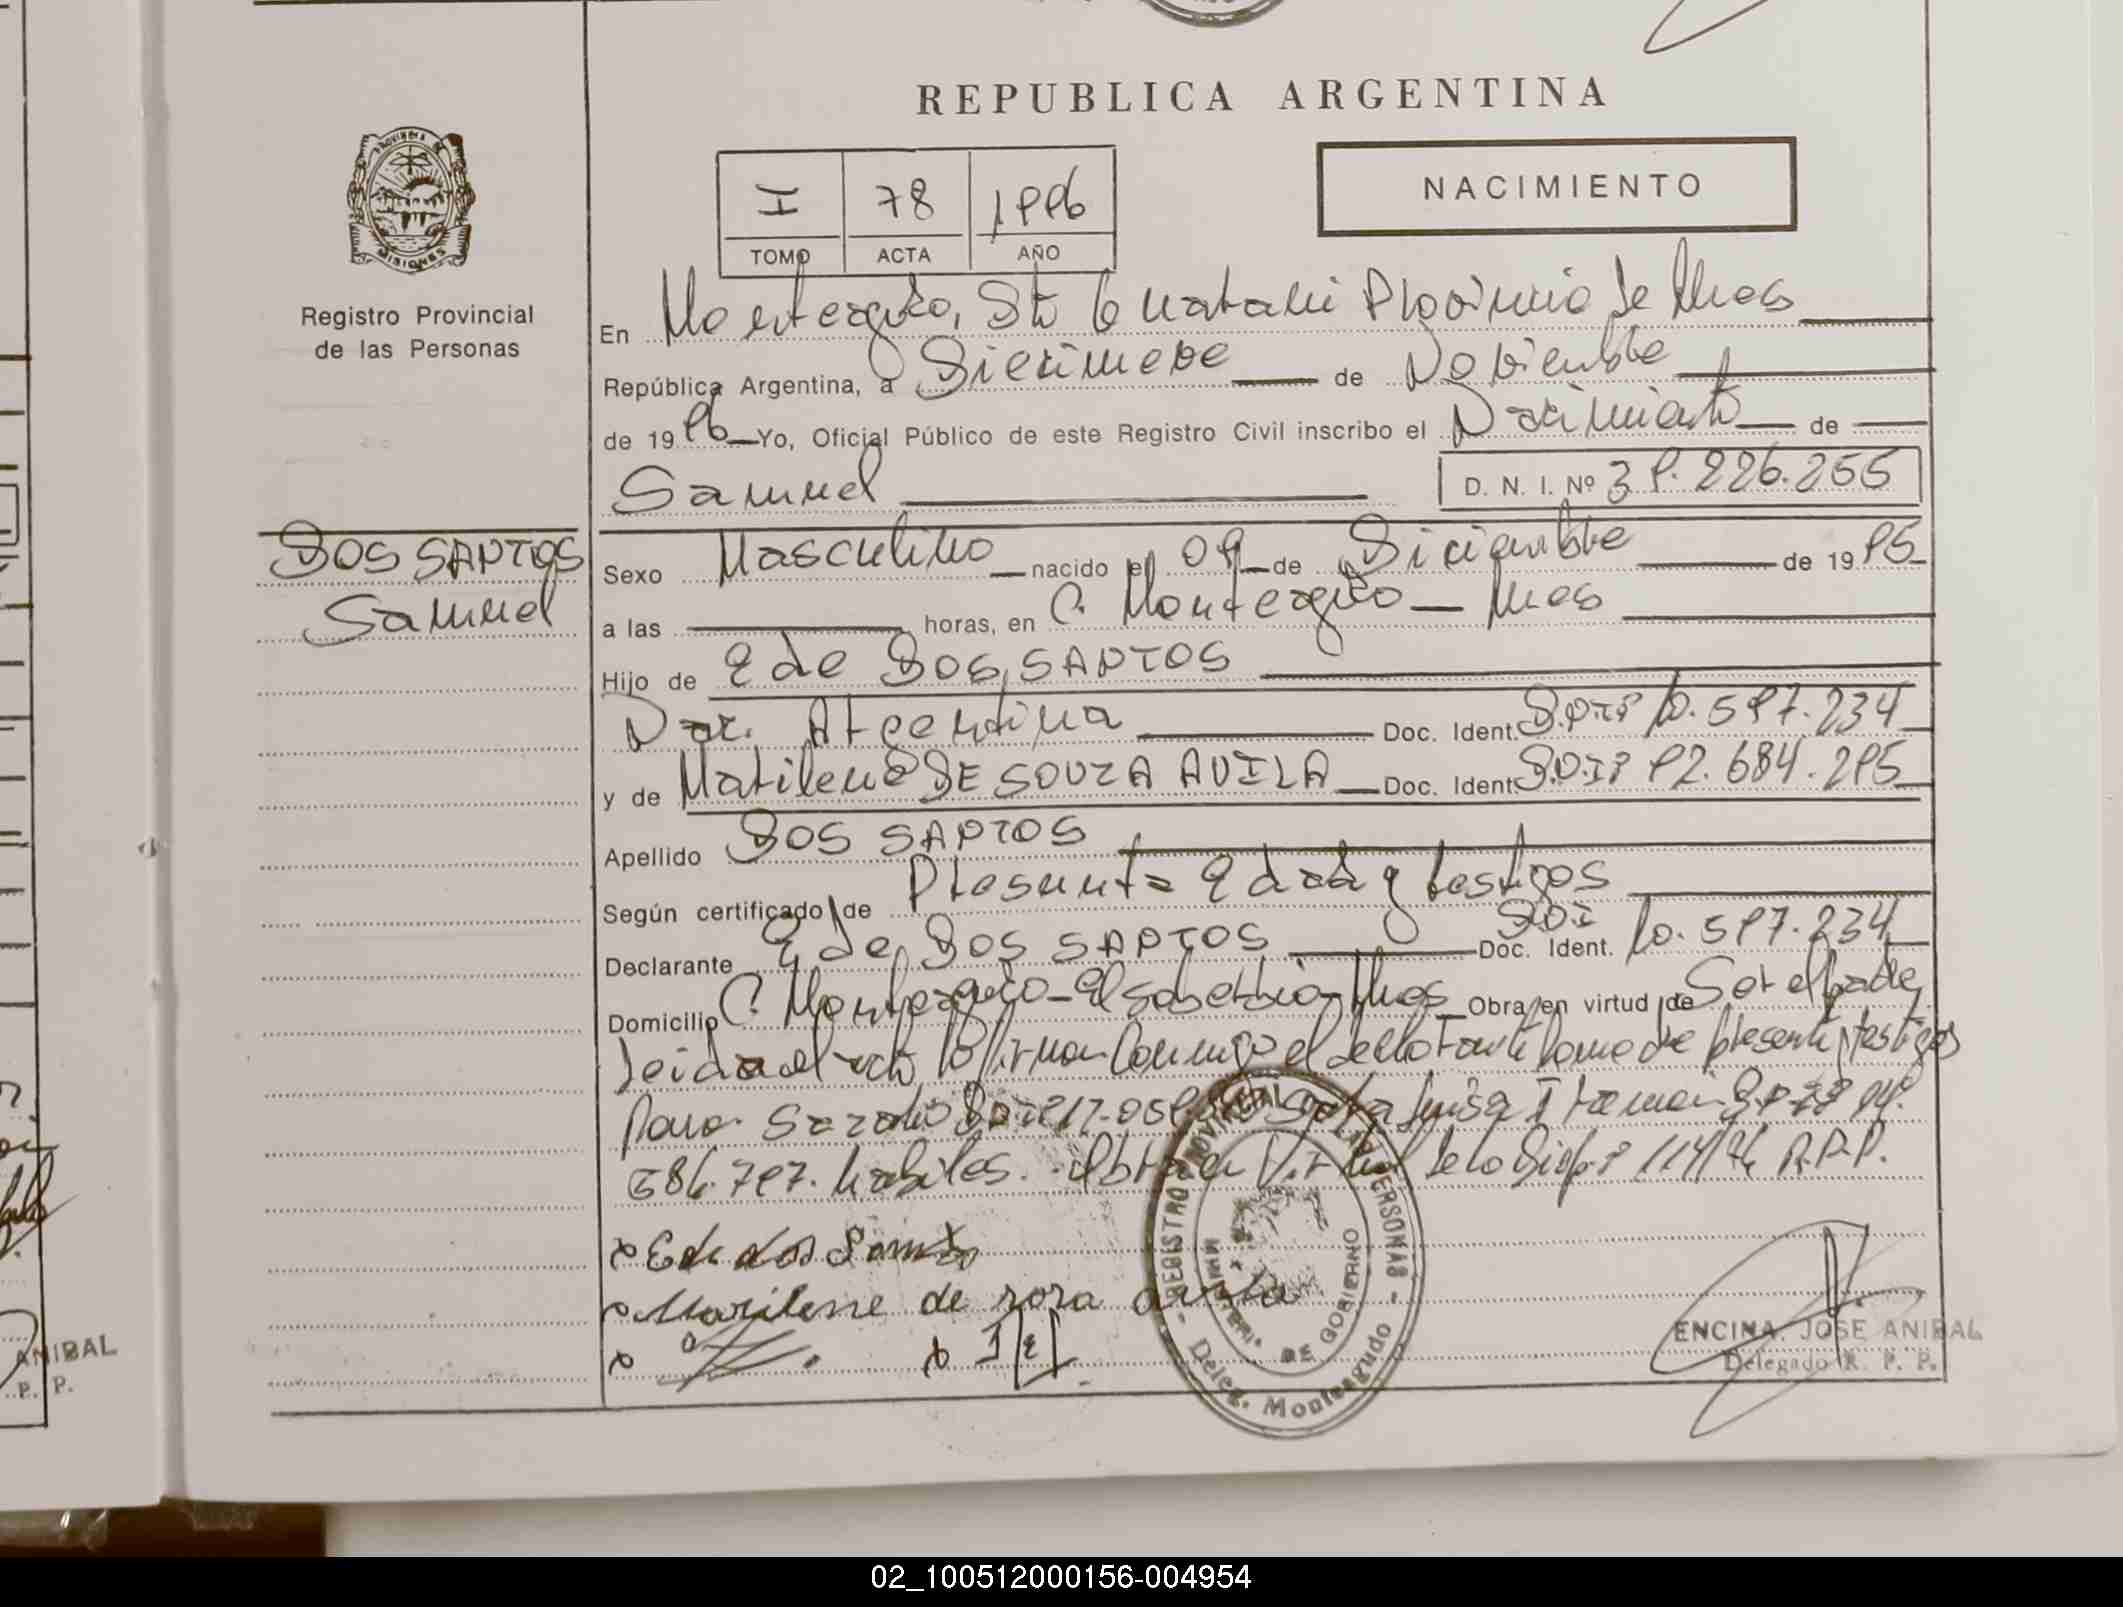 REPUBLICA ARGENTINA
NACIMIENTO
I 78 1996
TOMO ACTA AÑO
PROVINCIA DE
MISIONES
Registro Provincial
de las Personas
En Monteagudo, Provincia de Mnes
República Argentina, a Diecinueve de Noviembre
de 1996 Yo, Oficial Público de este Registro Civil inscribo el Nacimiento de
Samuel
D. N. I. Nº 39.226.255
DOS SANTOS
Samuel
Sexo Masculino nacido el 09 de Diciembre de 1995
a las horas, en C. Monteagudo - Mnes
Hijo de Ede DOS SANTOS
Nac. Argentina Doc. Ident. 10.597.234
y de Marilene DE SOUZA AVILA Doc. Ident. 92.684.295
Apellido DOS SANTOS
Según certificado de Presunta Edad y testigos
Declarante Ede DOS SANTOS Doc. Ident. DNI 10.597.234
Domicilio C. Monteagudo - El Soberbio - Mnes Obra en virtud de Ser el padre
Leida el acta la firman Conmigo el declarante la madre presente y testigos
habiles. Obra en Virtud de la R.P.P.
x Ede dos Santos
x Marilene de soza avila
x x
REGISTRO PROVINCIAL DE LAS PERSONAS
MINISTERIO DE GOBIERNO
Deleg. Monteagudo
ENCINA, JOSE ANIBAL
Delegado R. P. P.
ANIBAL
P. P.
02_100512000156-004954